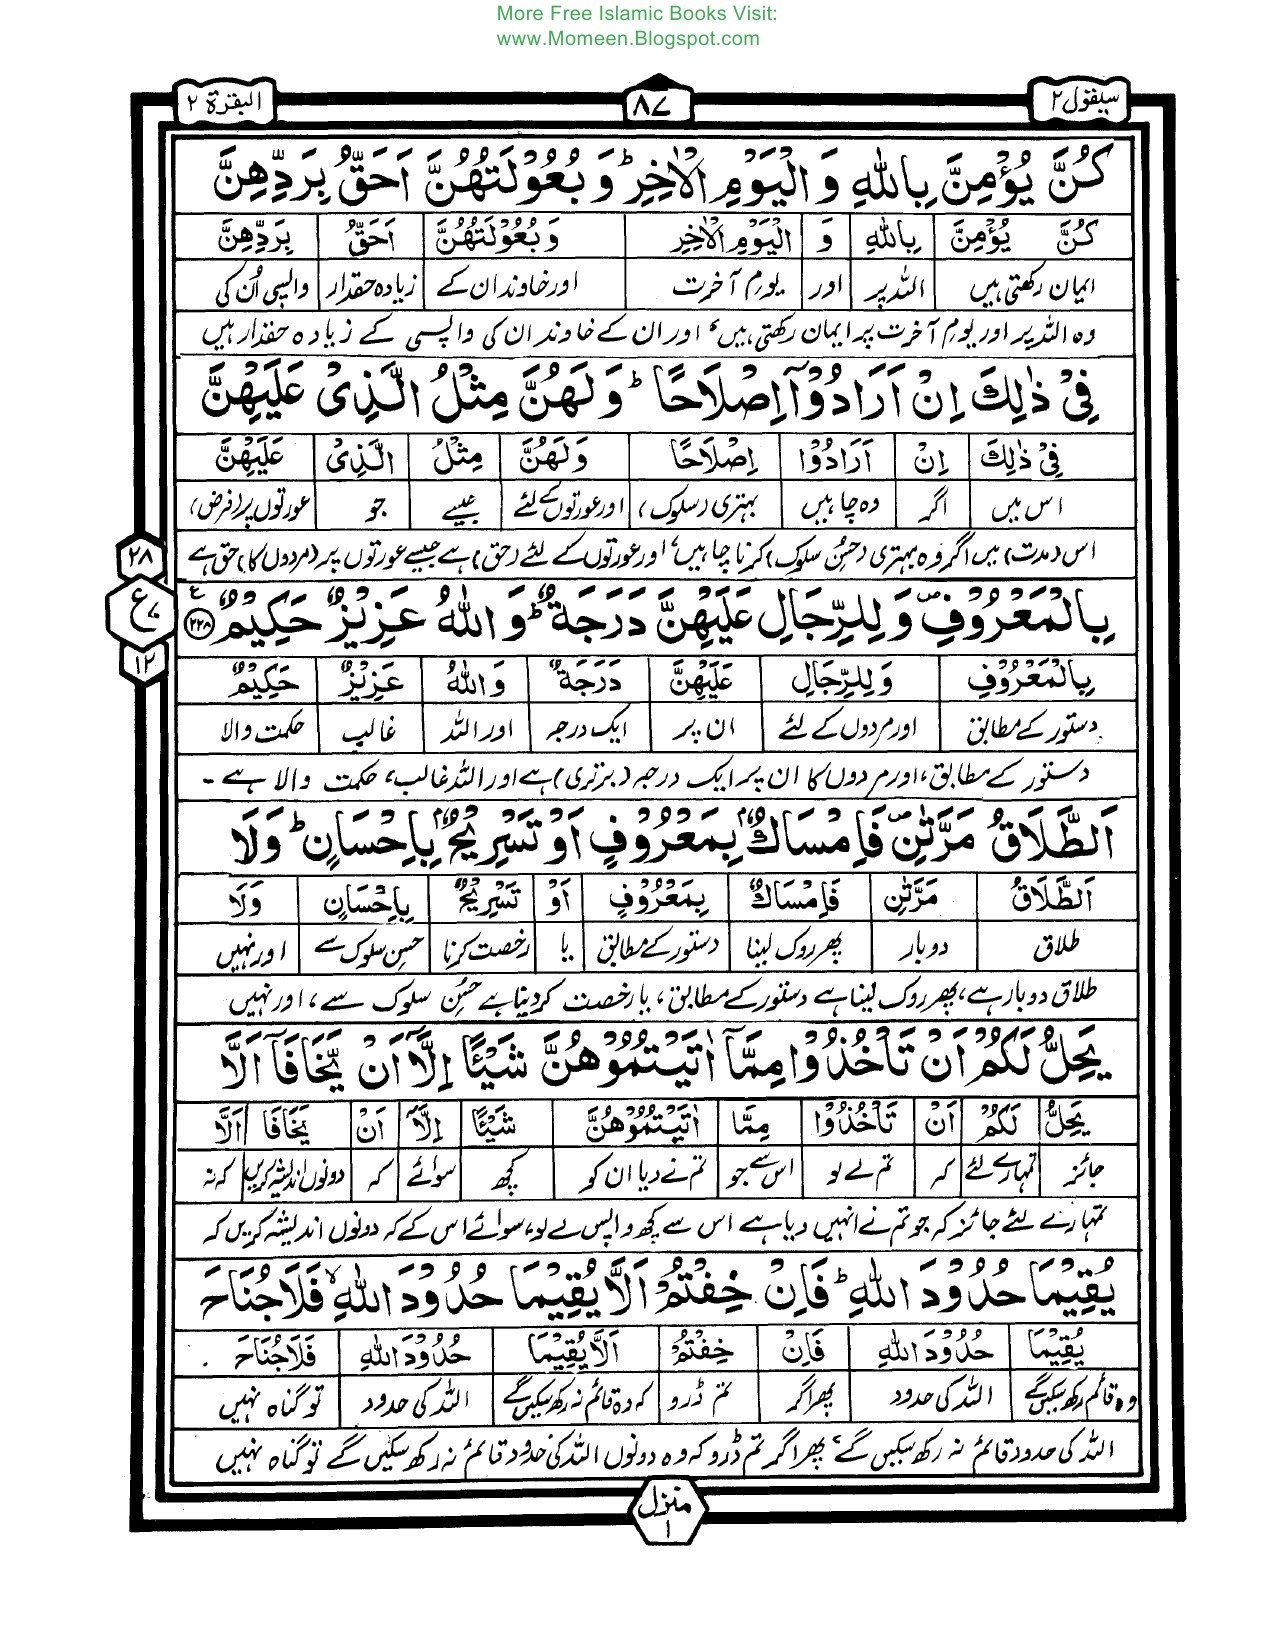 More Free Islamic Books Visit:
www.Momeen.Blogspot.com
سیقول ۲ ۸۷ البقرة ۲
كُنَّ يُؤْمِنَّ بِاللّٰهِ وَ الْيَوْمِ الْاٰخِرِ ؕ وَ بُعُوْلَتُهُنَّ اَحَقُّ بِرَدِّهِنَّ
كُنَّ يُؤْمِنَّ بِاللّٰهِ وَ الْيَوْمِ الْاٰخِرِ وَبُعُوْلَتُهُنَّ اَحَقُّ بِرَدِّهِنَّ
ایمان رکھتی ہیں اللہ پر اور یومِ آخرت اور خاوند ان کے زیادہ حقدار واپسی اُن کی
وہ اللہ پر اور یومِ آخرت پر ایمان رکھتی ہیں، اور ان کے خاوند ان کی واپسی کے زیادہ حقدار ہیں
فِيْ ذٰلِكَ اِنْ اَرَادُوْۤا اِصْلَاحًا ؕ وَلَهُنَّ مِثْلُ الَّذِيْ عَلَيْهِنَّ
فِيْ ذٰلِكَ اِنْ اَرَادُوْا اِصْلَاحًا وَلَهُنَّ مِثْلُ الَّذِيْ عَلَيْهِنَّ
اس میں اگر وہ چاہیں بہتری (سلوک) اور عورتوں کے لئے جیسے جو عورتوں پر (فرض)
اس (مدت) میں اگر وہ بہتری (حسنِ سلوک) کرنا چاہیں، اور عورتوں کے لئے (حق) ہے جیسے عورتوں پر (مردوں کا) حق ہے
۲۸
ع
۱۲
بِالْمَعْرُوْفِ ۪ وَلِلرِّجَالِ عَلَيْهِنَّ دَرَجَةٌ ؕ وَاللّٰهُ عَزِيْزٌ حَكِيْمٌ ۲۲۸
بِالْمَعْرُوْفِ وَلِلرِّجَالِ عَلَيْهِنَّ دَرَجَةٌ وَاللّٰهُ عَزِيْزٌ حَكِيْمٌ
دستور کے مطابق اور مردوں کے لئے ان پر ایک درجہ اور اللہ غالب حکمت والا
دستور کے مطابق، اور مردوں کا ان پر ایک درجہ (برتری) ہے اور اللہ غالب، حکمت والا ہے۔
اَلطَّلَاقُ مَرَّتٰنِ ۪ فَاِمْسَاكٌۢ بِمَعْرُوْفٍ اَوْ تَسْرِيْحٌۢ بِاِحْسَانٍ ؕ وَلَا
اَلطَّلَاقُ مَرَّتٰنِ فَاِمْسَاكٌ بِمَعْرُوْفٍ اَوْ تَسْرِيْحٌ بِاِحْسَانٍ وَلَا
طلاق دو بار پھر روک لینا دستور کے مطابق یا رخصت کرنا حسنِ سلوک سے اور نہیں
طلاق دو بار ہے، پھر روک لینا ہے دستور کے مطابق، یا رخصت کر دینا ہے حسنِ سلوک سے، اور نہیں
يَحِلُّ لَكُمْ اَنْ تَاْخُذُوْا مِمَّاۤ اٰتَيْتُمُوْهُنَّ شَيْـًٔا اِلَّاۤ اَنْ يَّخَافَاۤ اَلَّا
يَحِلُّ لَكُمْ اَنْ تَاْخُذُوْا مِمَّا اٰتَيْتُمُوْهُنَّ شَيْـًٔا اِلَّاۤ اَنْ يَخَافَا اَلَّا
جائز تمہارے لئے کہ تم لے لو اس سے جو تم نے دیا ان کو کچھ سوائے کہ دونوں اندیشہ کریں کہ نہ
تمہارے لئے جائز کہ جو تم نے انہیں دیا ہے اس سے کچھ واپس لے لو، سوائے اس کے کہ دونوں اندیشہ کریں کہ
يُقِيْمَا حُدُوْدَ اللّٰهِ ؕ فَاِنْ خِفْتُمْ اَلَّا يُقِيْمَا حُدُوْدَ اللّٰهِ ۙ فَلَا جُنَاحَ
يُقِيْمَا حُدُوْدَ اللّٰهِ فَاِنْ خِفْتُمْ اَلَّا يُقِيْمَا حُدُوْدَ اللّٰهِ فَلَا جُنَاحَ
وہ قائم رکھ سکیں گے اللہ کی حدود پھر اگر تم ڈرو کہ وہ قائم نہ رکھ سکیں گے اللہ کی حدود تو گناہ نہیں
اللہ کی حدود قائم نہ رکھ سکیں گے، پھر اگر تم ڈرو کہ وہ دونوں اللہ کی حدود قائم نہ رکھ سکیں گے تو گناہ نہیں
منزل ۱